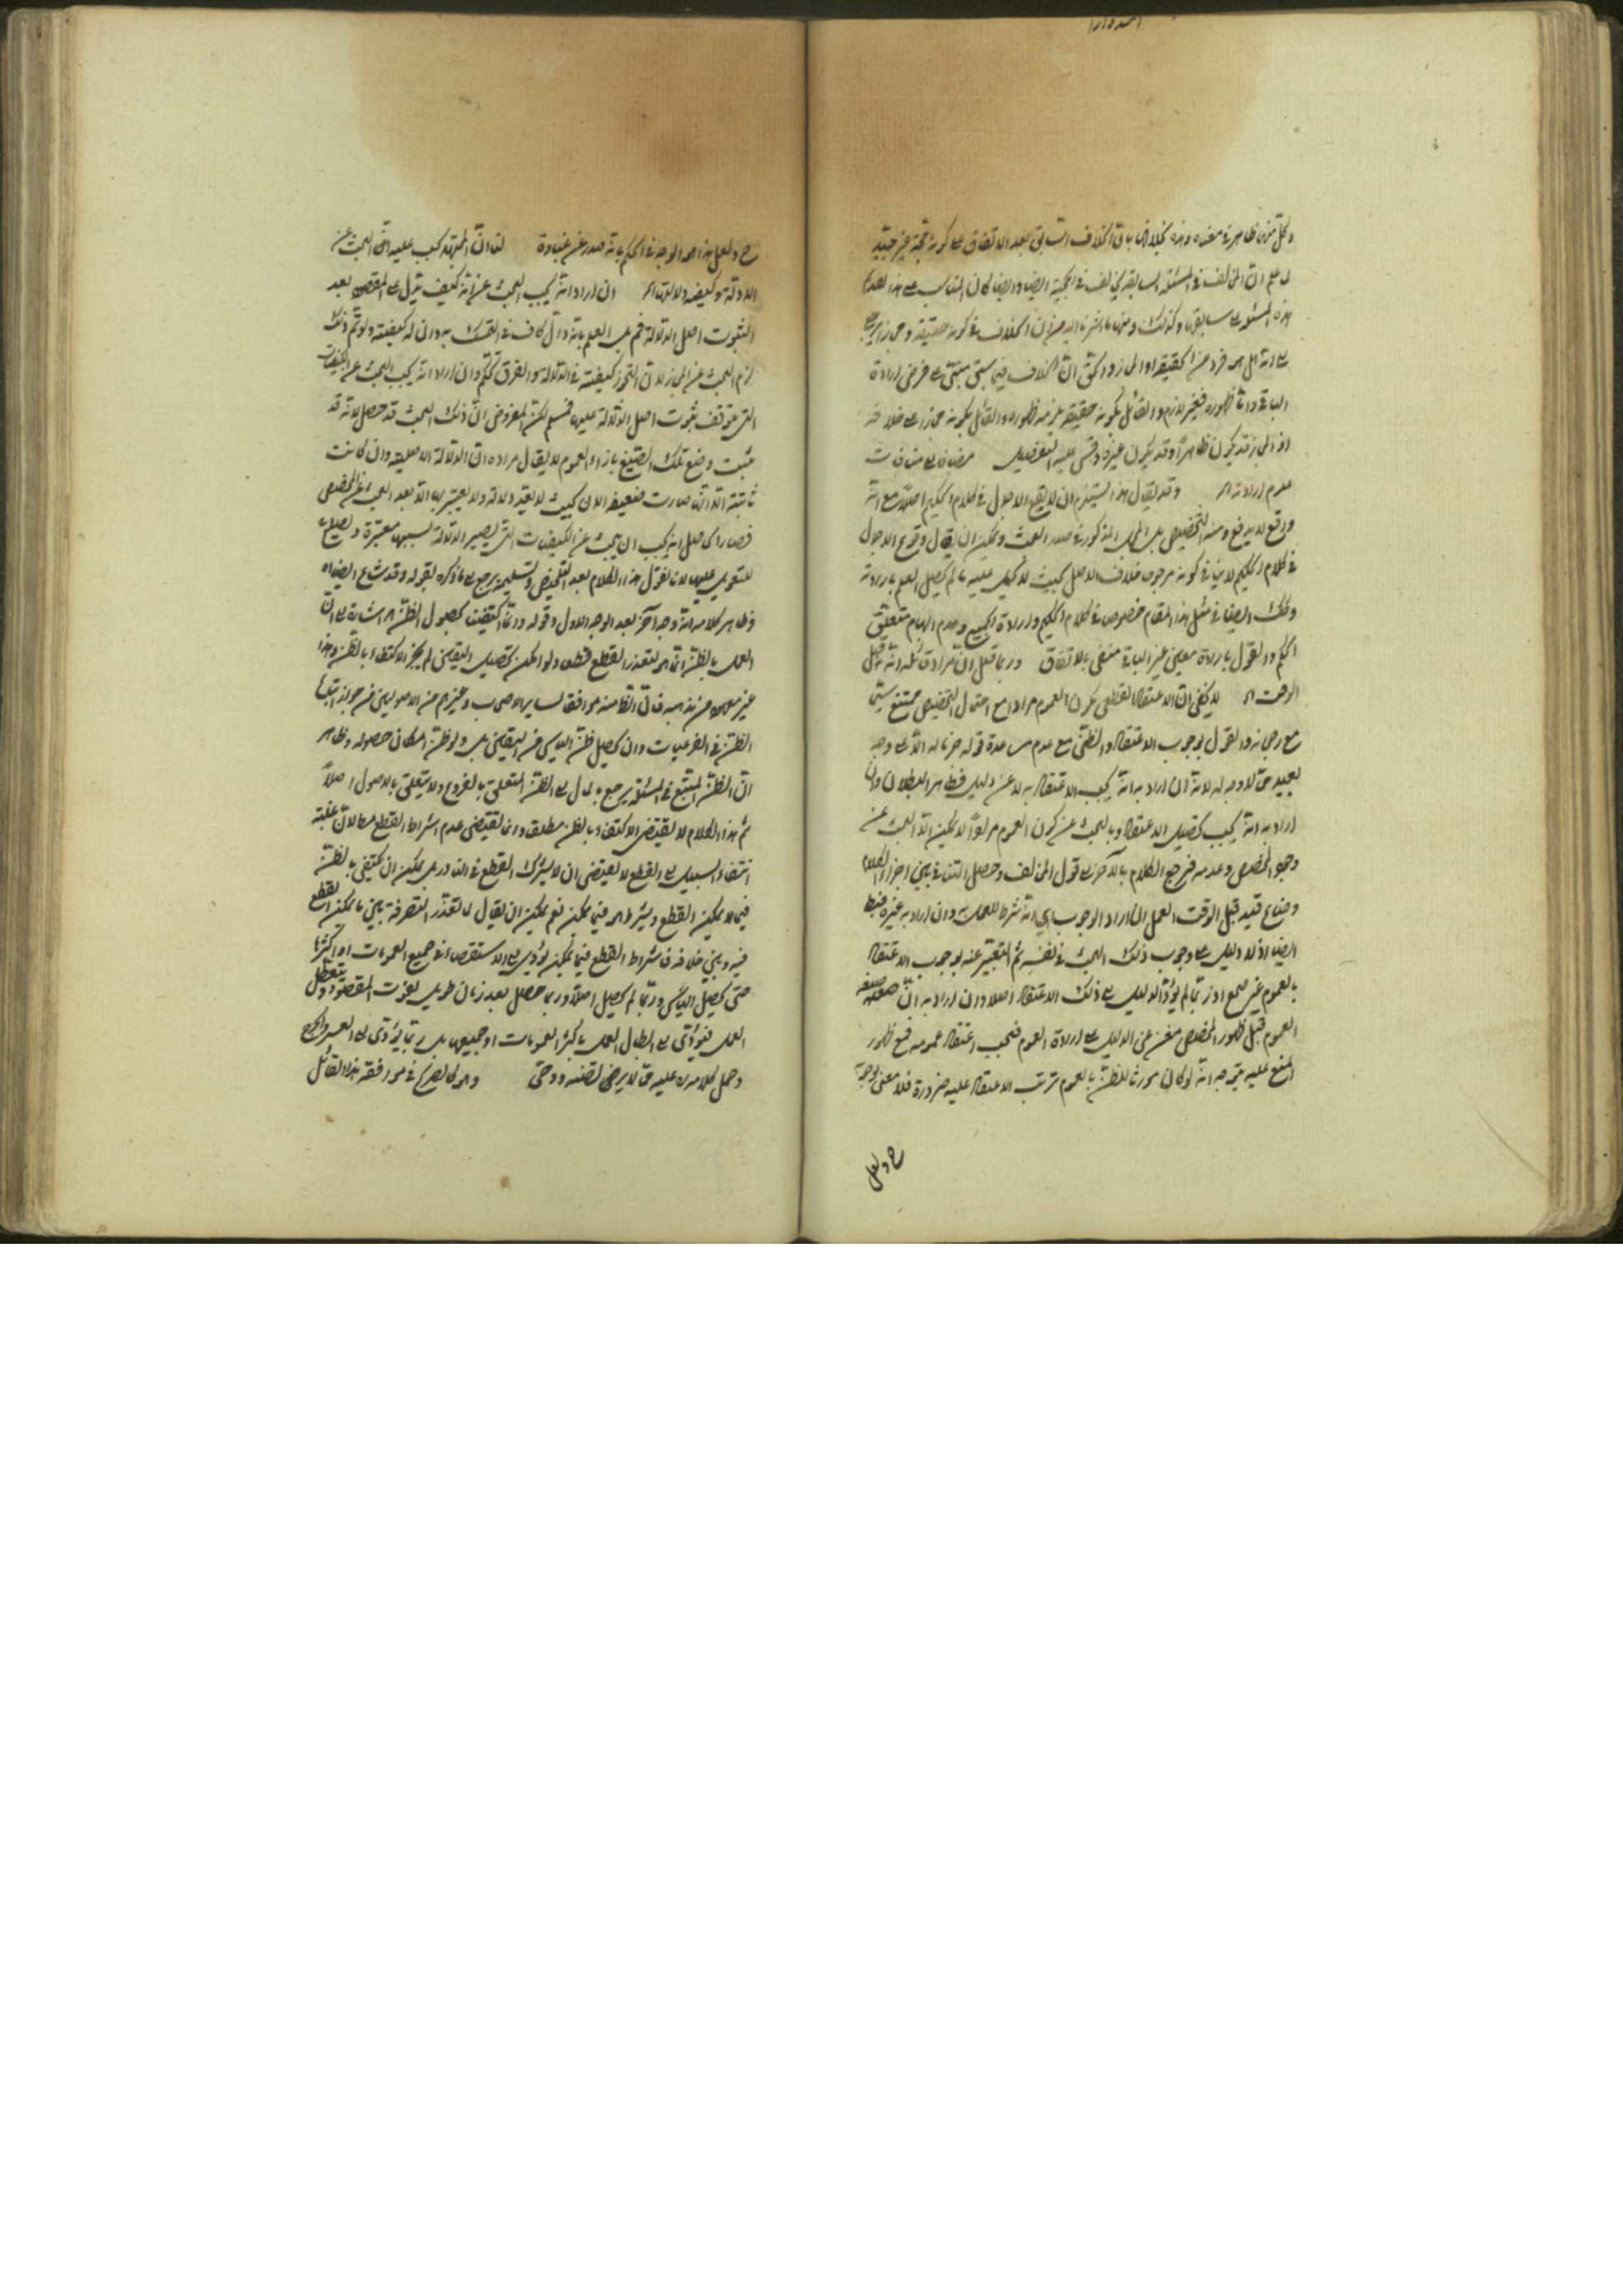 وكل منها ظاهر في معناه وهذه بخلافها باق الخلاف السابق بعد الاتفاق على كونه حجة غير
على ان المخالف في المسئلة السابقة يخالف في الحجية ايضا وايضا كان المناسب على هذا
هذه المسئلة سابقها وكذلك ومنها ما اشرنا اليه من ان الخلاف في كونه حقيقة ومجازا يرجع
الى انه هل هو فرد من الحقيقة او المجاز والحق ان الخلاف فيما سبق مبتنى على فرض ارادة
الباقي واما ظهوره فغير لازم والقائل بكونه حقيقة يلزمه ظهوره والقائل بكونه مجازا على خلافه
اذ المجاز قد يكون ظاهرا وقد يكون غيره وقس عليه التفصيل
عدم ارادته اه وقد يقال هذا يستلزم ان لا يقع الاجمال في كلام الحكيم اصلا مع انه
واقع لا يدفع ومنه التخصيص بالمجمل المذكور في صدر البحث ويمكن ان يقال وقوع الاجمال
في كلام الحكيم لا ينافي كونه مرجوحا خلاف الاصل بحيث لا يحمل عليه ما لم يحصل العلم بارادته
وذلك ايضا في مثل هذا المقام خصوص في كلام الحكيم وارادة الجميع وعدم ابهام متعلق
الحكم والقول بارادة معين غير الباقي منفى بالاتفاق وربما قيل ان مراد قائله انه قبل
الوقت اه لا يخفى ان الاعتقاد القطعي بكون العموم مرادا مع احتمال التخصيص ممتنع سيما
مع رجحانه والقول بوجوب الاعتقاد الظني مع عدم مساعدة قوله جزما له الا على وجه
بعيد مما لا وجه له لانه ان اراد به انه يجب الاعتقاد به لا عن دليل فظاهر البطلان وان
اراد به انه يجب تحصيل الاعتقاد وبالبحث عن كون العموم مرادا لا يمكن الا بالبحث عن
وجود المخصص وعدمه فيرجع الكلام بالاخرة الى قول المخالف وحصل التنافي بين اجزاء الكلام
وضاع قيد قبل الوقت العمل ان اراد الوجوب اي انه شرط للعمل وان اراد به غيره
ايضا اذ لا دليل على وجوب ذلك البحث في نفسه ثم التعبير عنه بوجوب الاعتقاد
بالعموم غير صحيح اذ ربما لم يؤد الدليل الى ذلك الاعتقاد اصلا وان اراد به ان صيغة
العموم قبل ظهور المخصص مغن عن الدليل على ارادة العموم فيجب اعتقاد عمومه فمع ظهور
المنع عليه يتوجه انه لو كان مورثا للظن بالعموم ترتب الاعتقاد عليه ضرورة فلا معنى لوجوبه
ح ولعل
ح ولعل هذا هو الوجه في الحكم بانه صدر عن غباوة لنا ان المجتهد يجب عليه البحث عن
الادلة وكيفية دلالتها اه ان اراد انه يجب البحث عن انه كيف يدل على المقصود بعد
الثبوت اصل الدلالة فمم بل العلم بانه دال كاف في التمسك به وان له كيفية ولو تم ذلك
لزم البحث عن المجاز لان التجوز كيفية في الدلالة والفرق تحكم وان اراد انه يجب البحث عن الكيفيات
التي يتوقف ثبوت اصل الدلالة عليها فمسلم لكن المفروض ان ذلك البحث قد حصل لانه قد
ثبت وضع تلك الصيغ بازاء العموم لا يقال مراده ان الدلالة الاصلية وان كانت
ثابتة الا انها صارت ضعيفة الان بحيث لا يعتد دلالة ولا يعتبر بها الا بعد البحث عن المخصص
فصار الحاصل انه يجب ان يبحث عن الكيفيات التي يصير الدلالة بسببها معتبرة ويصلح
للتعويل عليها لانا نقول هذا الكلام بعد التمحيض والتسليم يرجع الى ما ذكره بقوله وقد شاع ايضا اه
وظاهر كلامه انه وجه آخر بعد الوجه الاول وقوله وانما اكتفينا بحصول الظن اه اشارة الى ان
العمل بالظن انما هو لتعذر القطع فقط ولو امكن تحصيل اليقين لم يجز الاكتفاء بالظن وهذا
غير معهود من مذهبه فان الظاهر منه موافقة ساير الاصحاب وغيرهم من الاصوليين من جواز اتباع
الظن في الفرعيات وان يحصل ظن الياس من اليقين بل ولو ظن امكان حصوله وظاهر
ان الظن المتبع في المسئلة يرجع بالمآل الى الظن المتعلق بالفروع ولا يتعلق بالاصول اصلا
ثم هذا الكلام لا يقتضي الاكتفاء بالظن مطلقا وانما يقتضي عدم اشتراط القطع مطلقا لان غلبة
انتفاء السبيل الى القطع لا يقتضي ان لا يشترط القطع في النادر بل يمكن ان يكتفى بالظن
فيما لا يمكن القطع ويشترط هو فيما يمكن نعم يمكن ان يقال لما تعذر التفرقة بين ما يمكن القطع
فيه وبين خلافه فاشتراط القطع فيما يمكن يؤدي الى الاستقصاء في جميع العمومات او اكثرها
حتى يحصل الياس وربما لم يحصل اصلا وربما حصل بعد زمان طويل يفوت المقصود ويتعطل
العمل فيؤدي الى ابطال العمل باكثر العمومات او جميعها بل ربما يؤدي الى العسر والحرج
وحمل كلامه عليه مما لا يرضى لصعبه